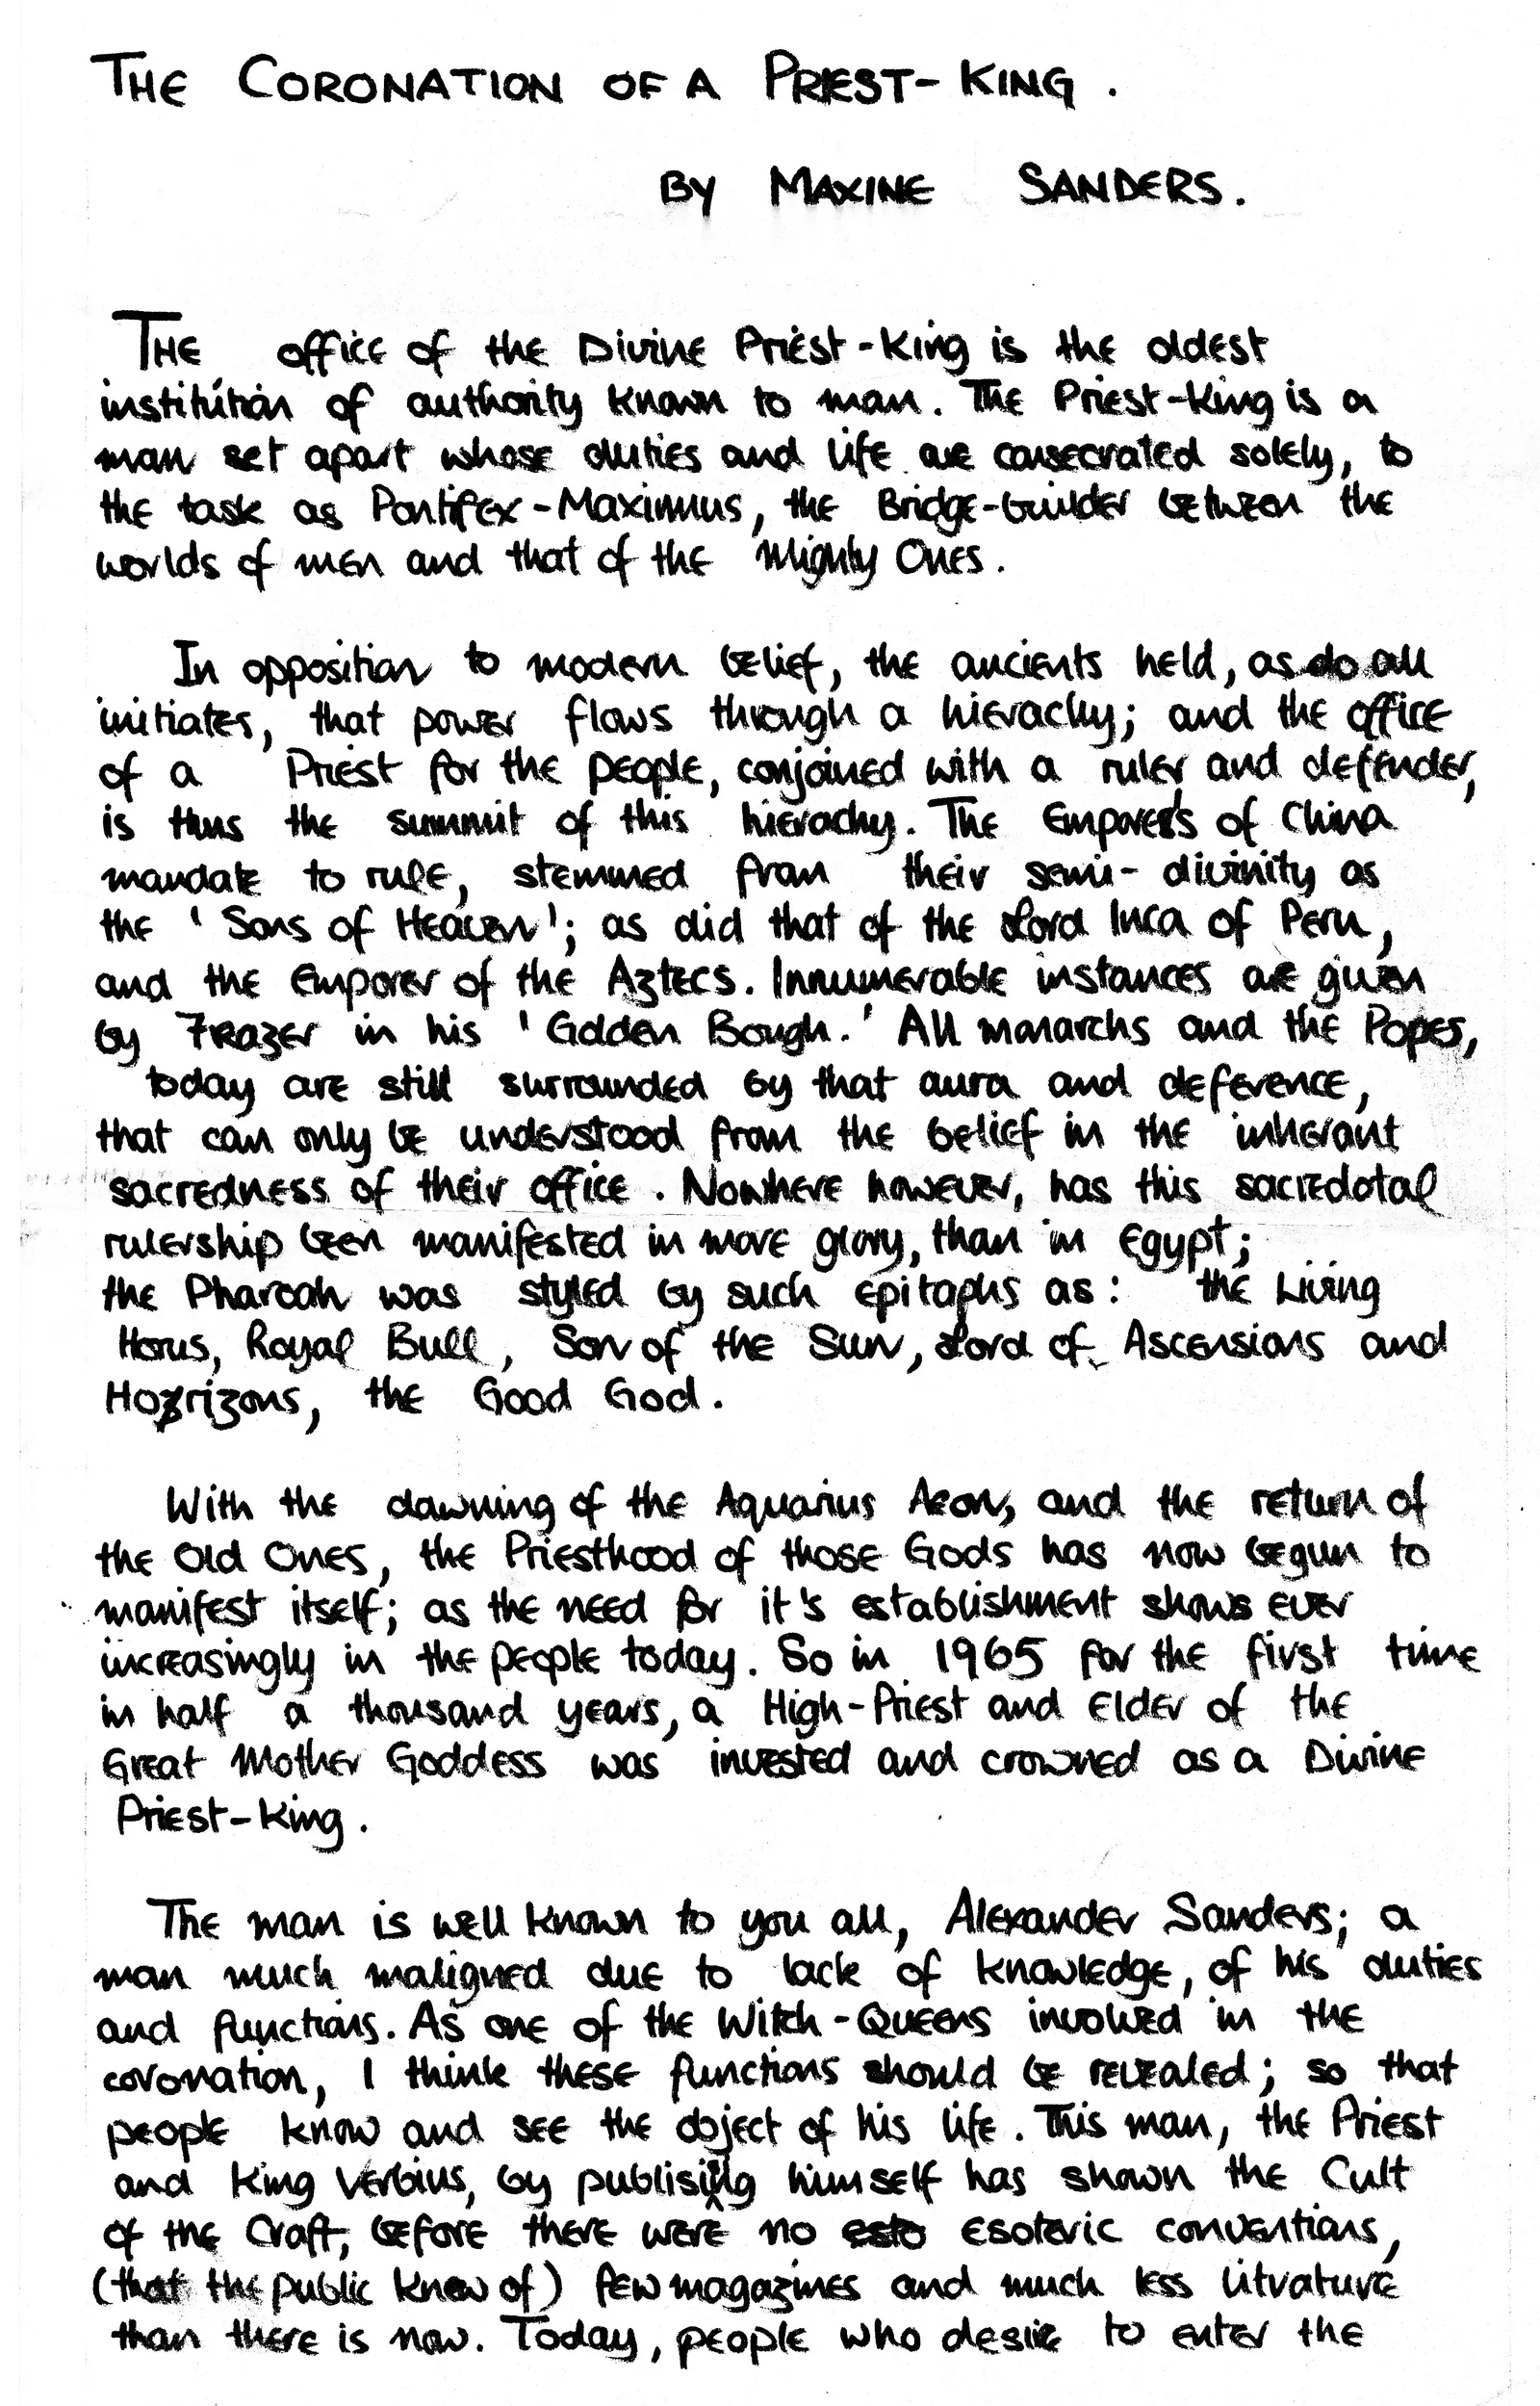 THE CORONATION OF A PRIEST-KING.
BY MAXINE SANDERS.
THE office of the Divine Priest-King is the oldest
institution of authority known to man. The Priest-King is a
man set apart whose duties and life are consecrated solely, to
the task as Pontifex-Maximus, the Bridge-builder between the
worlds of men and that of the Mighty Ones.
In opposition to modern belief, the ancients held, as do all
initiates, that power flows through a hierachy; and the office
of a Priest for the people, conjoined with a ruler and defender,
is thus the summit of this hierachy. The Emporers of China
mandate to rule, stemmed from their semi-divinity as
the 'Sons of Heaven'; as did that of the Lord Inca of Peru,
and the Emporer of the Aztecs. Innumerable instances are given
by Frazer in his 'Golden Bough.' All monarchs and the Popes,
today are still surrounded by that aura and deference,
that can only be understood from the belief in the inherant
sacredness of their office. Nowhere however, has this sacredotal
rulership been manifested in more glory, than in Egypt;
the Pharoah was styled by such epitaphs as: the Living
Horus, Royal Bull, Son of the Sun, Lord of Ascensions and
Horizons, the Good God.
With the dawning of the Aquarius Aeon, and the return of
the Old Ones, the Priesthood of those Gods has now begun to
manifest itself; as the need for it's establishment shows ever
increasingly in the people today. So in 1965 for the first time
in half a thousand years, a High-Priest and Elder of the
Great Mother Goddess was invested and crowned as a Divine
Priest-King.
The man is well known to you all, Alexander Sanders; a
man much maligned due to lack of knowledge, of his duties
and functions. As one of the Witch-Queens involved in the
coronation, I think these functions should be revealed; so that
people know and see the object of his life. This man, the Priest
and King Verbius, by publising himself has shown the Cult
of the Craft, before there were no esto esoteric conventions,
(that the public knew of) few magazines and much less litrature
than there is now. Today, people who desire to enter the